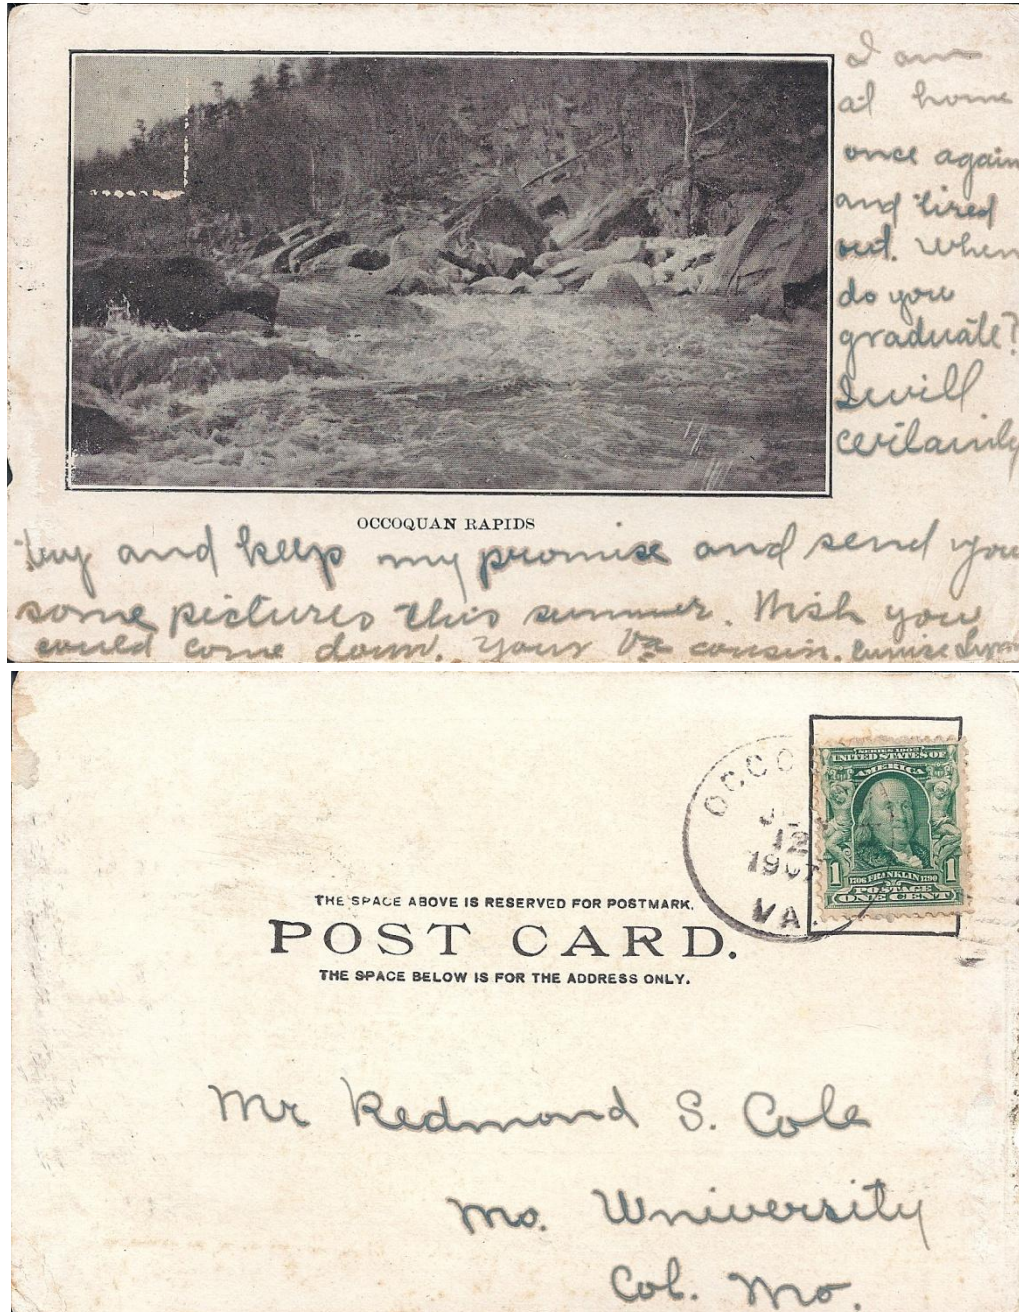 I am
at home
once again
and tired
out. When
do you
graduate?
I will
certainly
OCCOQUAN RAPIDS
try and keep my promise and send you
some pictures this summer. Wish you
could come down. Your Va cousin.
OCCO
12
190
VA.
SERIES 1902
UNITED STATES OF
AMERICA
1 1
1706 FRANKLIN 1790
POSTAGE
ONE CENT
THE SPACE ABOVE IS RESERVED FOR POSTMARK.
POST CARD.
THE SPACE BELOW IS FOR THE ADDRESS ONLY.
Mr Redmond S. Cole
Mo. University
Col. Mo.